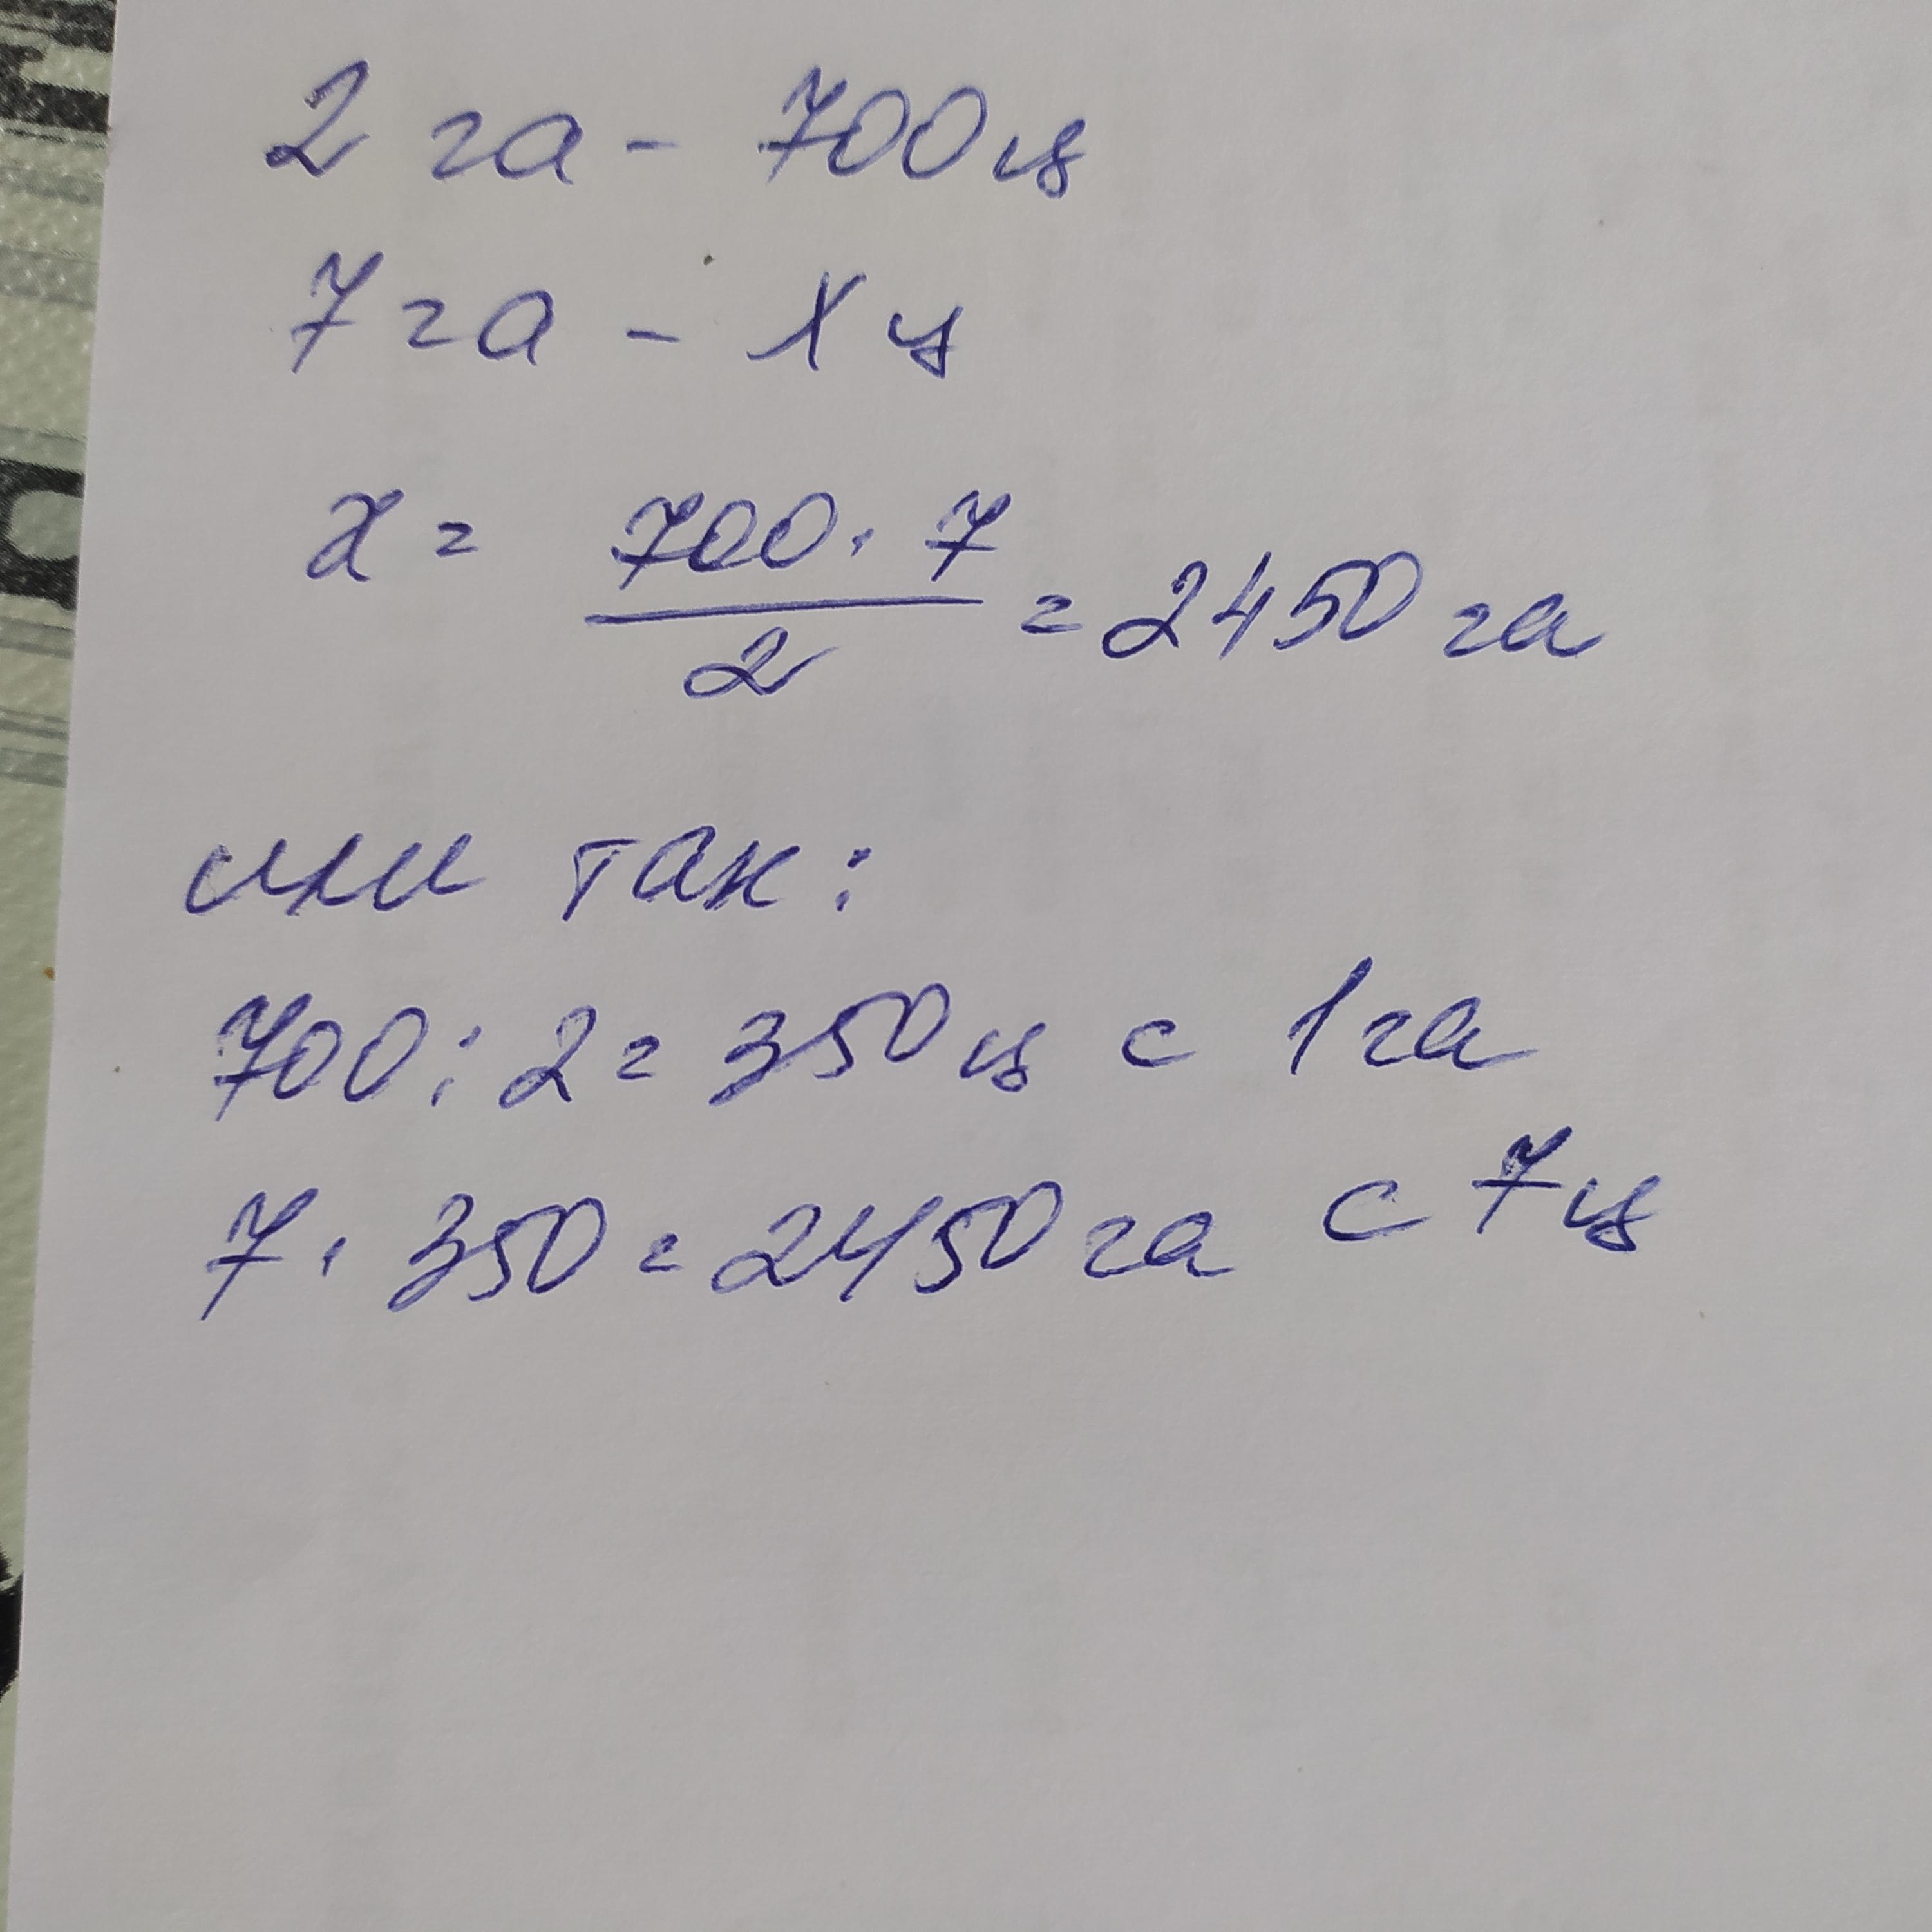 2 га - 700 ц
7 га - X ц
x = 700 · 7 / 2 = 2450 га
или так:
700 : 2 = 350 ц с 1 га
7 · 350 = 2450 га с 7 ц